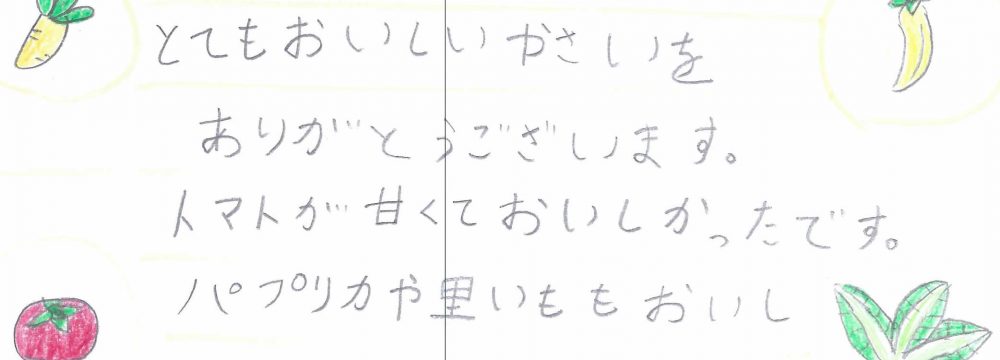 とてもおいしいやさいを
ありがとうございます。
トマトが甘くておいしかったです。
パプリカや里いももおいし